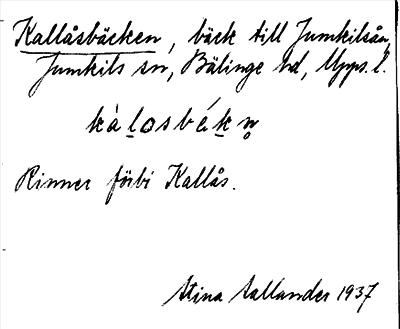 Kallåsbäcken, bäck till Jumkilsån,
Jumkils sn, Bälinge hd, Upps. l.
kàlosbék̥n̥
Rinner förbi Kallås.
Stina Sallander 1937